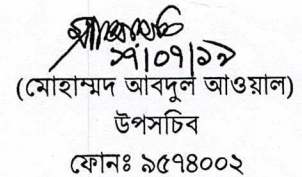 (মোহাম্মদ আবদুল আওয়াল)
উপসচিব
ফোনঃ ৯৫৭৪০০২